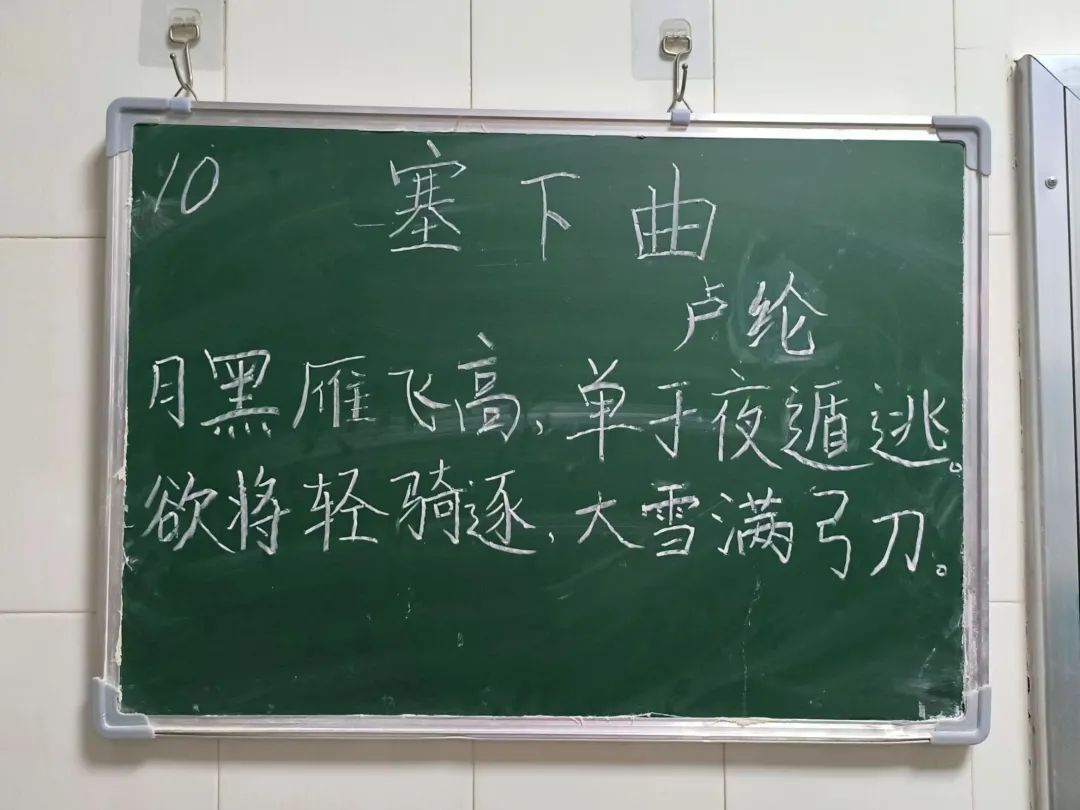 10
塞下曲
卢纶
月黑雁飞高,单于夜遁逃。
欲将轻骑逐,大雪满弓刀。